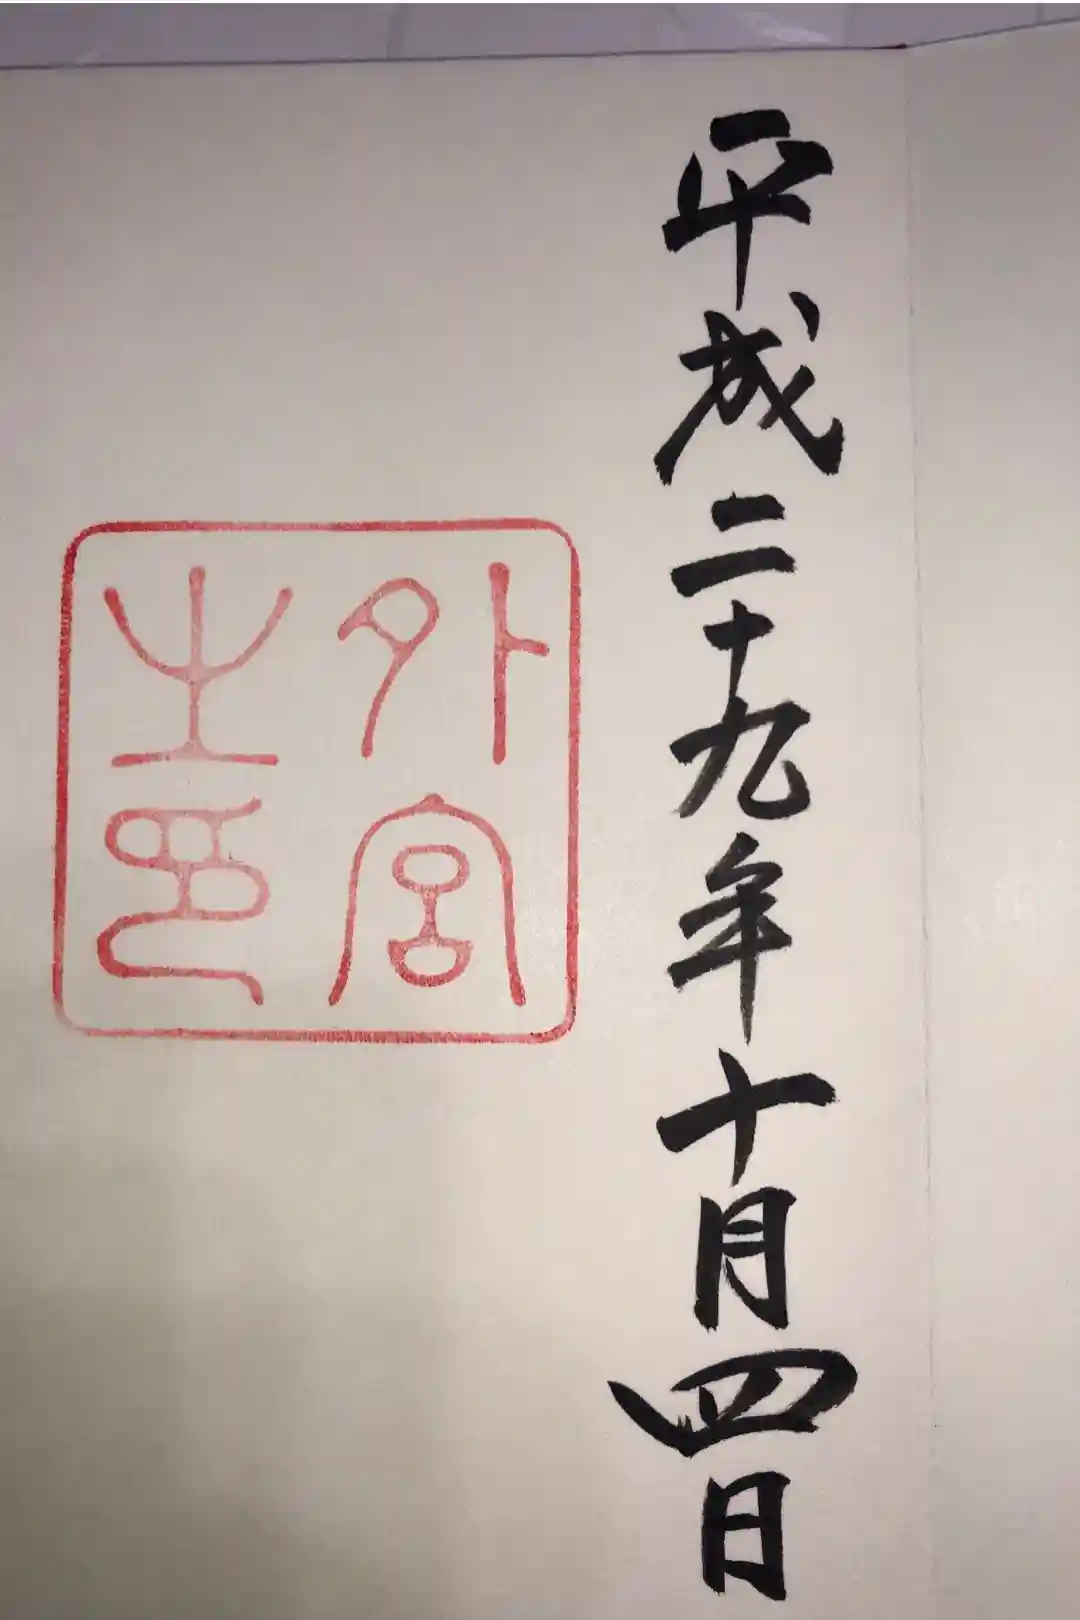 平成二十九年十月四日
外宮
之印